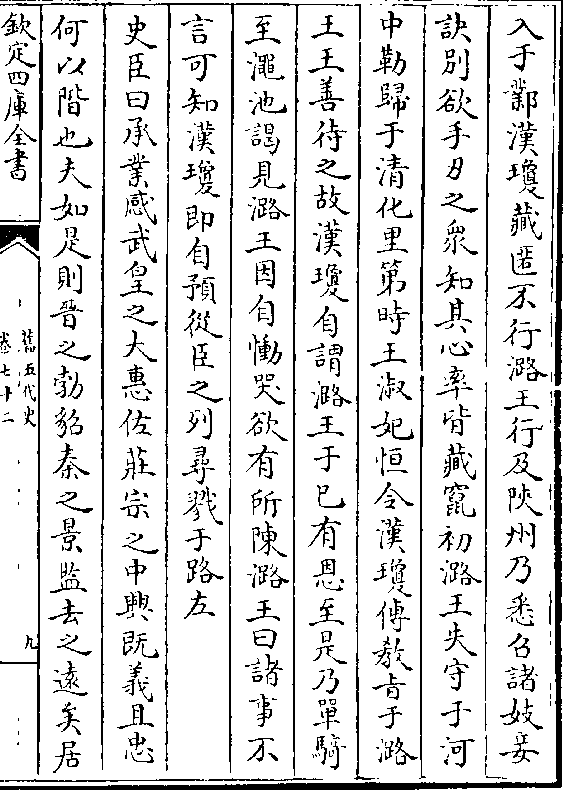 入于鄴漢瓊藏匿不行潞王行及陜州乃悉召諸妓妾
訣別欲手刃之衆知其心率皆藏竄初潞王失守于河
中勒歸于清化里第時王淑妃恒令漢瓊傳教旨于潞
王王善待之故漢瓊自謂潞王于已有恩至是乃單騎
至澠池謁見潞王因自慟哭欲有所陳潞王曰諸事不
言可知漢瓊即自預從臣之列尋戮于路左
史臣曰承業感武皇之大惠佐莊宗之中興既義且忠
何以階也夫如是則晉之勃貂秦之景監去之遠矣居
欽定四庫全書
舊五代史
卷七十二
九